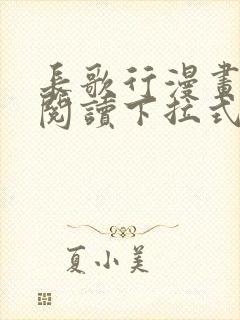 長歌行漫畫
閱讀下拉式
夏小美